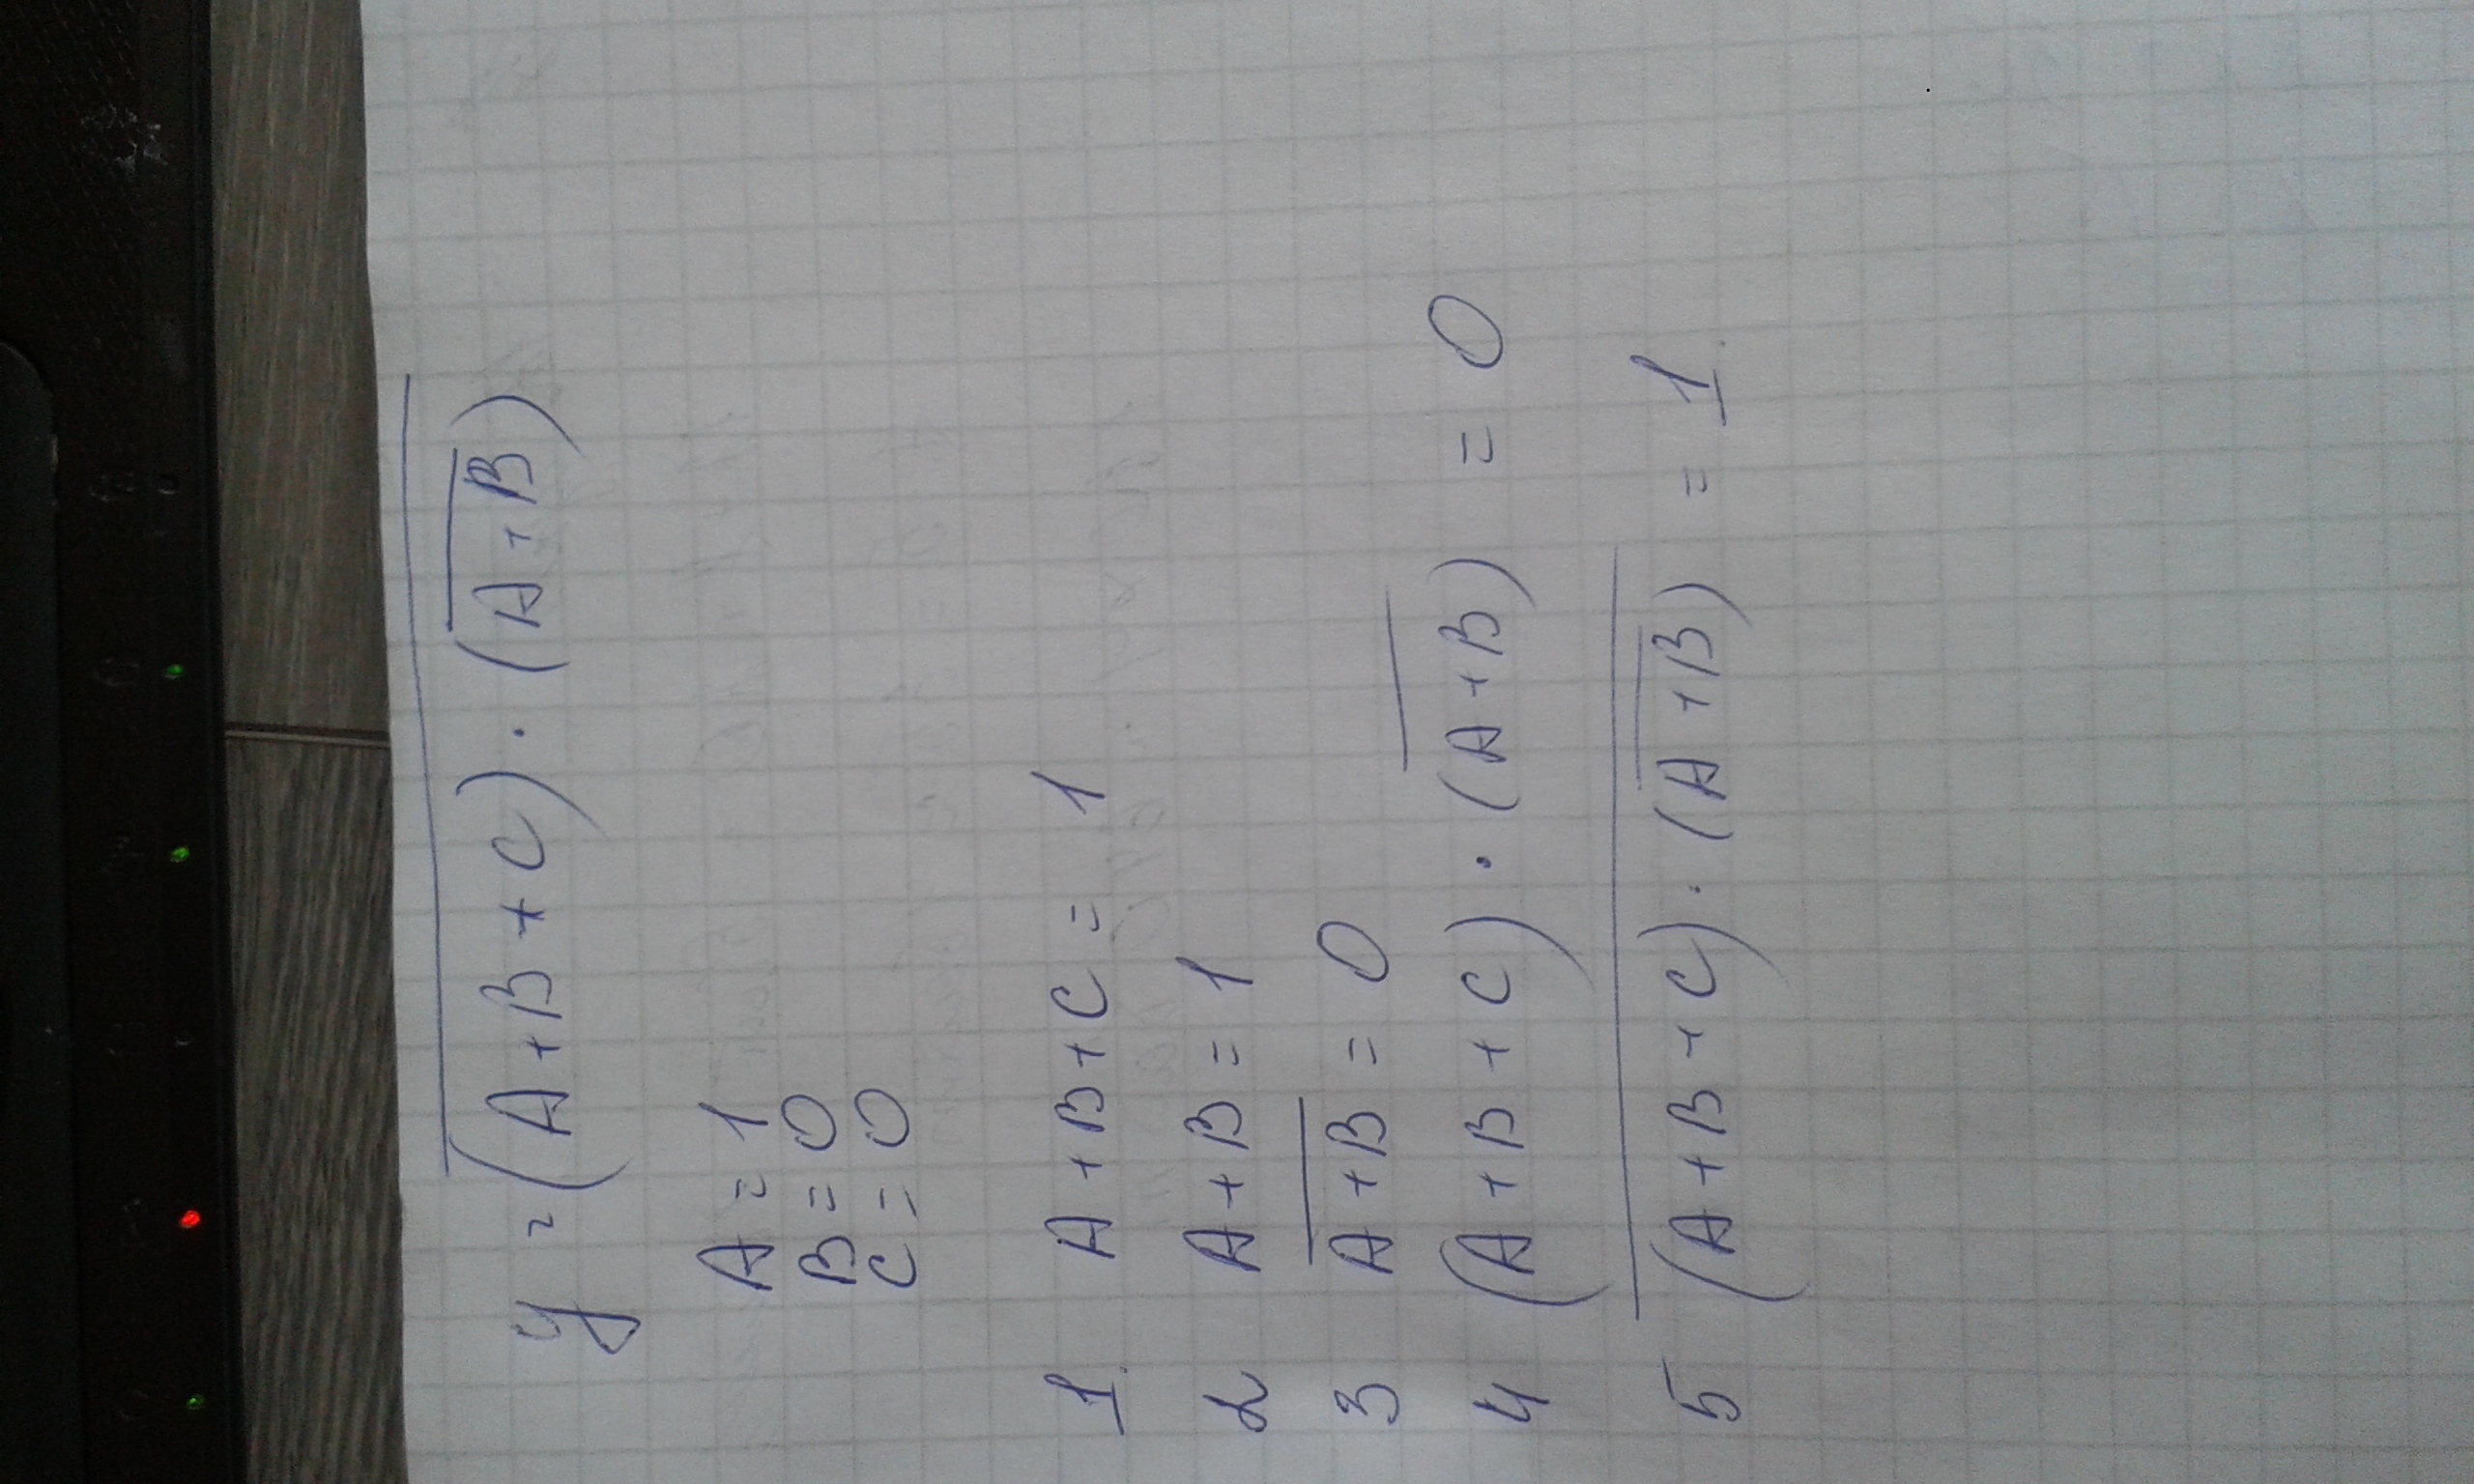 y = \overline{(A+B+C)·(\overline{A+B})}
A=1
B=0
C=0
1. A+B+C= 1
2 A+B=1
3 \overline{A+B}=0
4 (A+B+C)·(\overline{A+B}) = 0
5 \overline{(A+B+C)·(\overline{A+B})} = 1